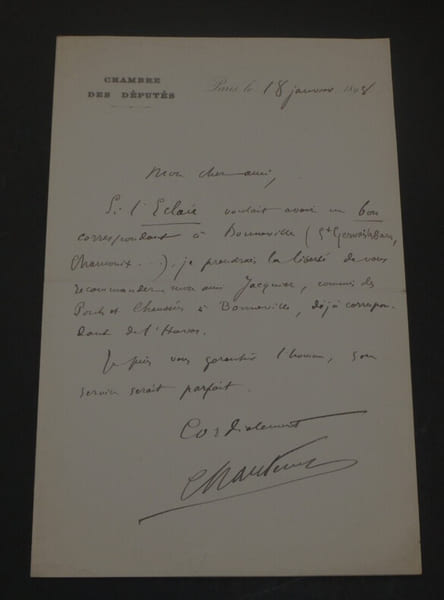 CHAMBRE
DES DÉPUTÉS
Paris, le 18 janvier 1898
Mon cher ami,
Si l'Eclair voulait avoir un bon
correspondant à Bonneville (St Gervais les Bains,
Chamonix...), je prendrais la liberté de vous
recommander mon ami Jacquier, commis des
Ponts et Chaussées à Bonneville, déjà correspon-
dant de l'Havas.
Je puis vous garantir l'homme, son
service serait parfait.
Cordialement